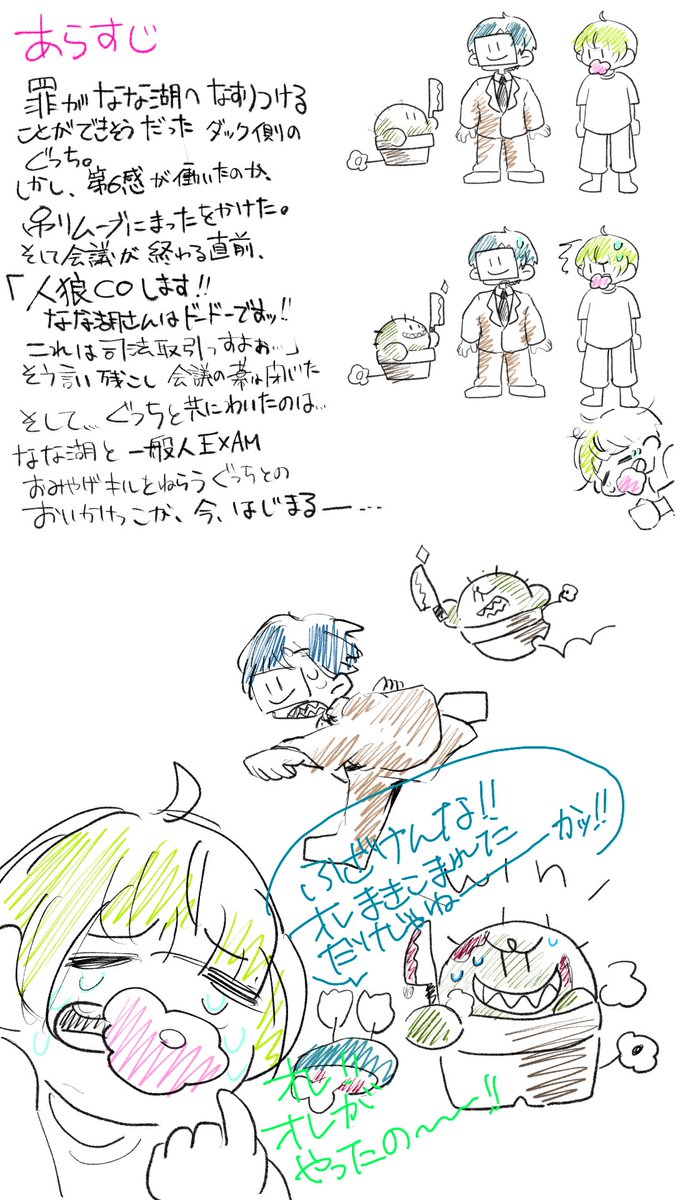 あらすじ
罪がなな湖へなすりつける
ことができそうだった ダック側の
ぐっち。
しかし、第6感が働いたのか、
吊リムーブにまったをかけた。
そして会議が終わる直前、
「人狼COします!!
なな湖さんはドードーですッ!!
これは司法取引っすよぉ…」
そう言い残こし 会議の幕は閉じた
そして… ぐっちと共にわいたのは…
なな湖と 一般人EXAM
おみやげキルをねらうぐっちとの
おいかけっこが、今、はじまる——…
ふざけんな!!
オレまきこまれてた
だけじゃねーーーかッ!!
win
オレ!!
オレが
やったの〜〜!!